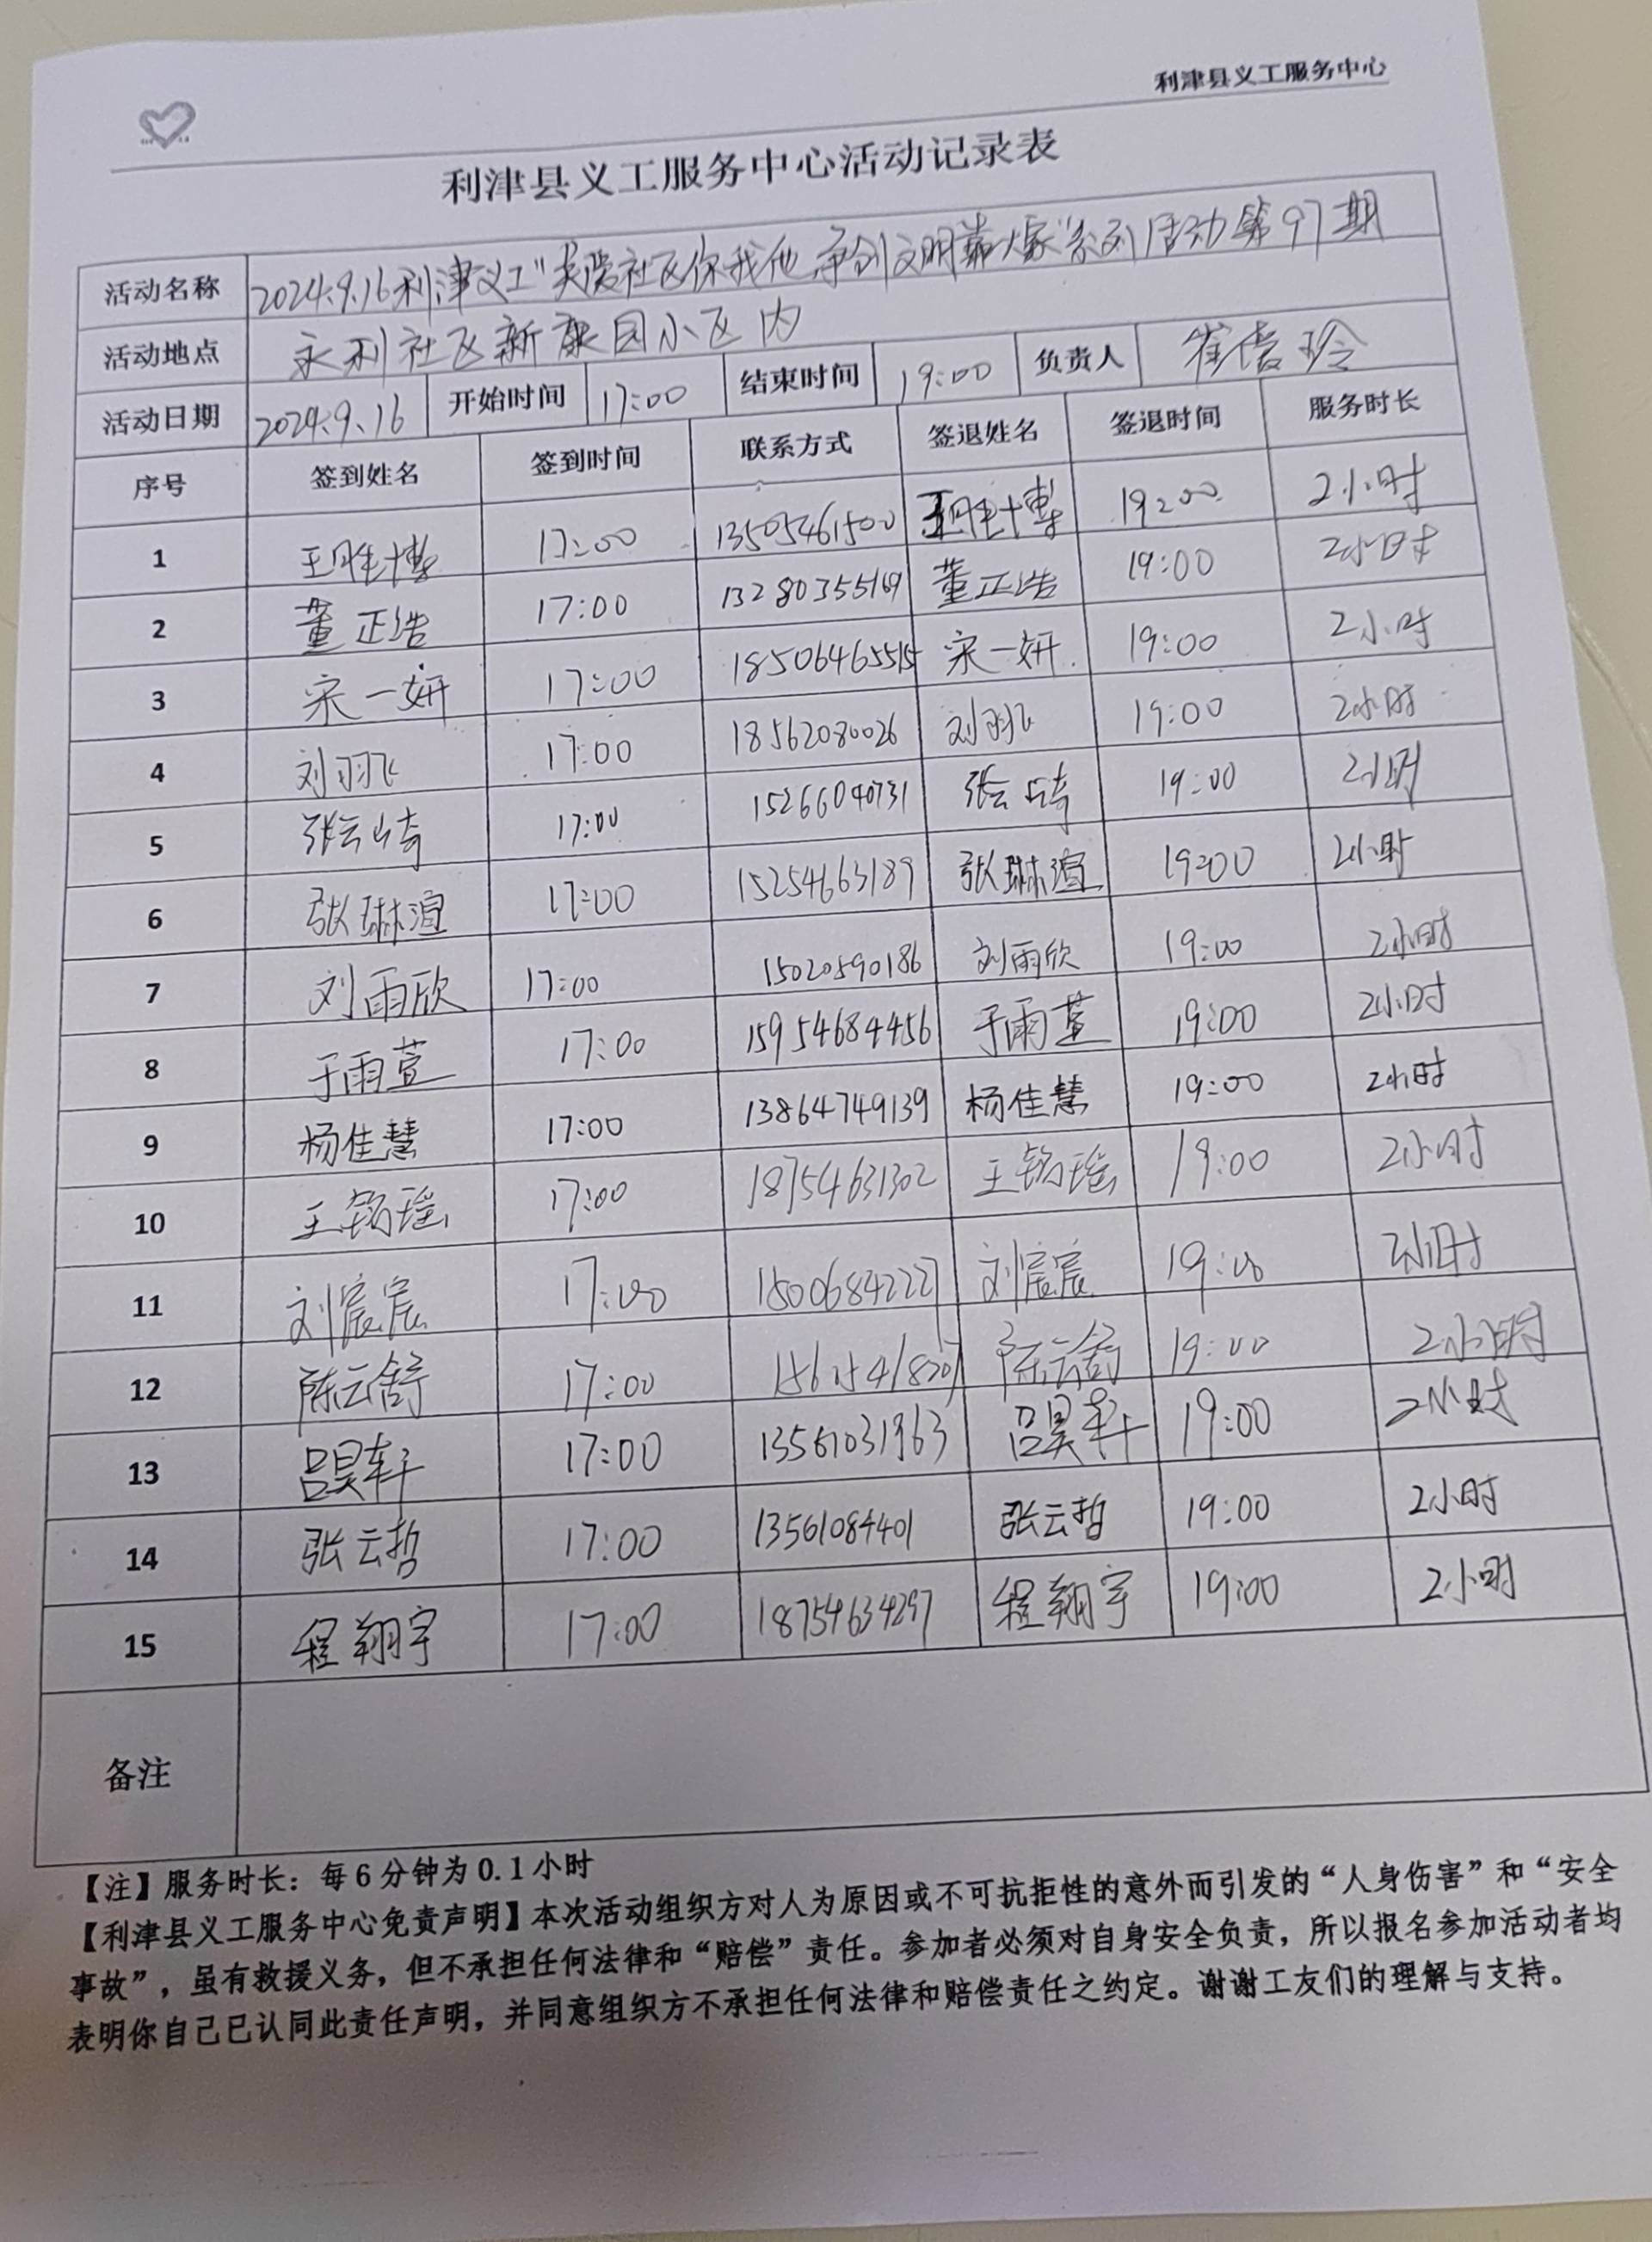 利津县义工服务中心
利津县义工服务中心活动记录表
活动名称 2024.9.16利津义工"关爱社区你我他 争创文明靠大家"系列活动第97期
活动地点 永利社区新康园小区内
活动日期 2024.9.16 开始时间 17:00 结束时间 19:00 负责人 崔 玲
序号 签到姓名 签到时间 联系方式 签退姓名 签退时间 服务时长
1 王胜博 17:00 13505461500 王胜博 19:00 2小时
2 董正浩 17:00 13280355169 董正浩 19:00 2小时
3 宋一妍 17:00 18506465515 宋一妍 19:00 2小时
4 刘羽飞 17:00 18562080026 刘羽飞 19:00 2小时
5 张云崎 17:00 15266040731 张云崎 19:00 2小时
6 张琳渲 17:00 15254663189 张琳渲 19:00 2小时
7 刘雨欣 17:00 15020590186 刘雨欣 19:00 2小时
8 于雨萱 17:00 15954684456 于雨萱 19:00 2小时
9 杨佳慧 17:00 13864749139 杨佳慧 19:00 2小时
10 王铭瑶 17:00 18754631302 王铭瑶 19:00 2小时
11 刘宸宸 17:00 15006842227 刘宸宸 19:00 2小时
12 陈云舒 17:00 陈云舒 19:00 2小时
13 吕昊轩 17:00 13561031963 吕昊轩 19:00 2小时
14 张云哲 17:00 13561084401 张云哲 19:00 2小时
15 程翔宇 17:00 18754634297 程翔宇 19:00 2小时
备注
【注】服务时长：每6分钟为0.1小时
【利津县义工服务中心免责声明】本次活动组织方对人为原因或不可抗拒性的意外而引发的“人身伤害”和“安全
事故”，虽有救援义务，但不承担任何法律和“赔偿”责任。参加者必须对自身安全负责，所以报名参加活动者均
表明你自己已认同此责任声明，并同意组织方不承担任何法律和赔偿责任之约定。谢谢工友们的理解与支持。